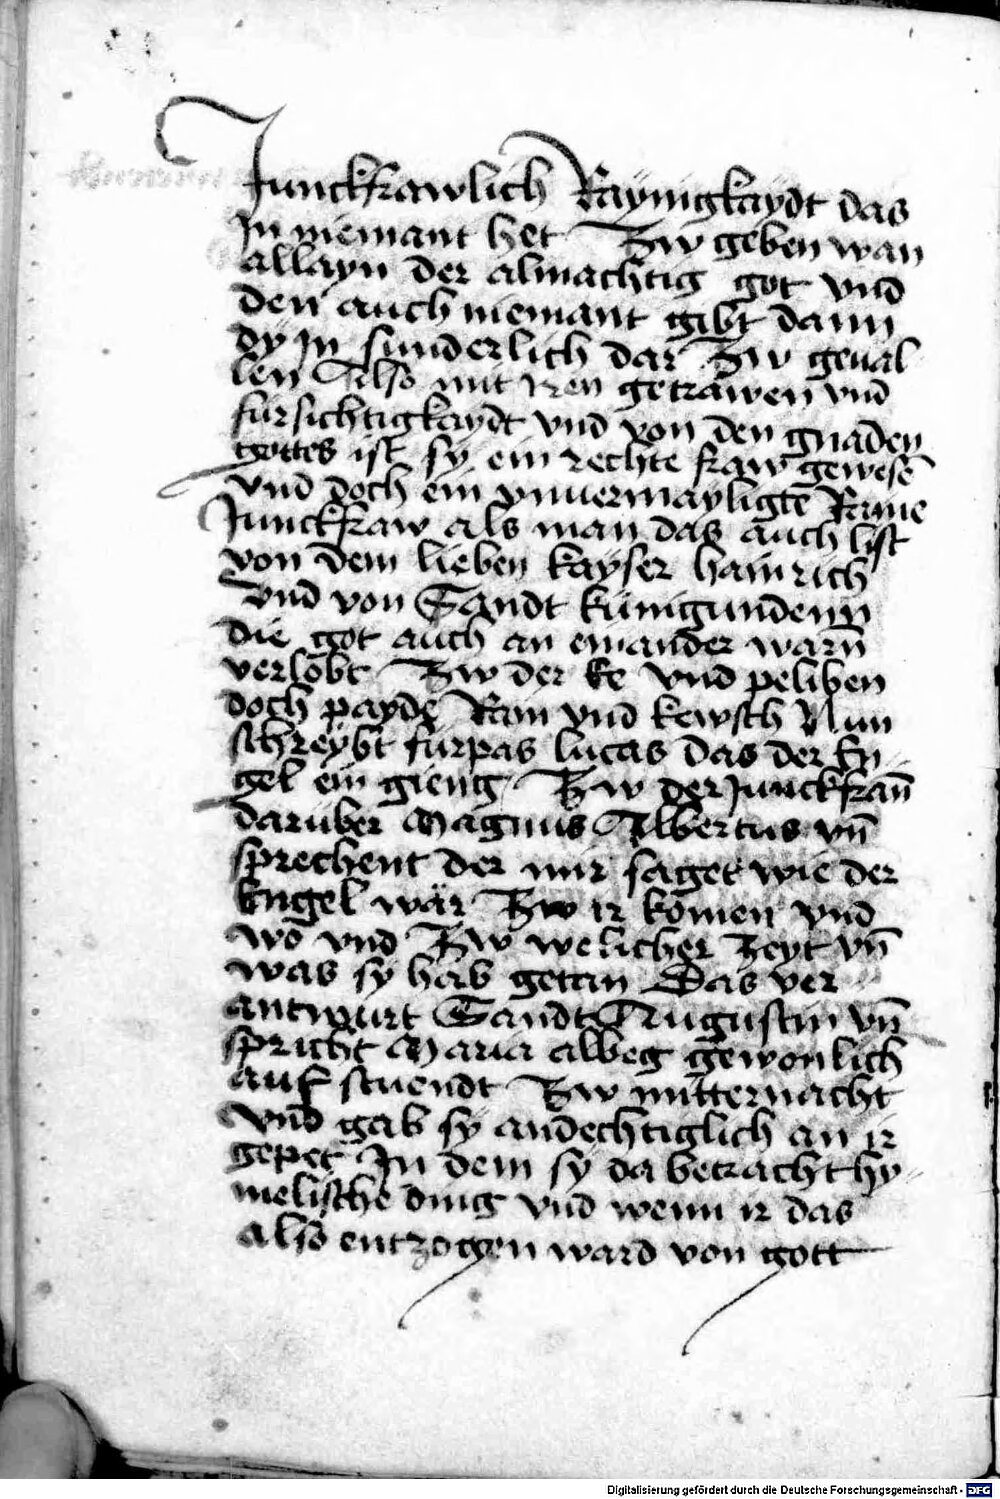 Junckfrawlich Raynigkaydt das
In niemant het Zw geben wan
allayn der almachtig got vnd
den auch niemant gibt dann
dy In sunderlich dar Zw geual
len Also mit iren getrawen vnd
fürsichtigkaydt vnd von den gnaden
gottes ist sy ein rechte fraw gewesē
vnd doch ein vnuermayligte Raine
Junckfraw als man das auch list
von dem lieben kayser hainrich
vnd von Sandt künigundenn
die got auch an einander warn̄
verlobt Zw der Ee vnd peliben
doch payde Rain vnd kewsch Nun
schreybt fürpas lucas das der En„
gel ein gieng Zw der Junckfran̄
darüber Magnus Albertus vn̄
sprechent der mir saget wie der
Engel wär Zw ir komen vnd
wo vnd Zw welicher Zeyt vn̄
was sy hab getan Das ver
antwurt Sandt Augustin vn̄
spricht Maria albeg gewonlich
auf stuendt Zw mitternacht
vnd gab sy andechtiglich an ir
gepet In dem sy da betracht hy„
melische ding vnd wenn ir das
also entzogen ward von gott